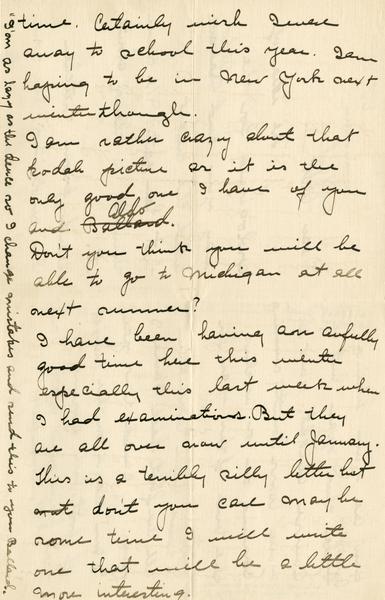 time. Certainly wish I were
away to school this year. I am
hoping to be in New York next
winter though.
I am rather crazy about that
kodak picture as it is the
only good one I have of you
also
and Ballard.
Don't you think you will be
able to go to Michigan at all
next summer?
I have been having an awfully
good time here this winter
especially this last week when
I had examinations. But they
are all over now until January.
This is a terribly silly letter but
don't you care may be
some time I will write
one that will be a little
more interesting.
I'm as lazy as the deuce so I change mistakes and send this to you Ballard.